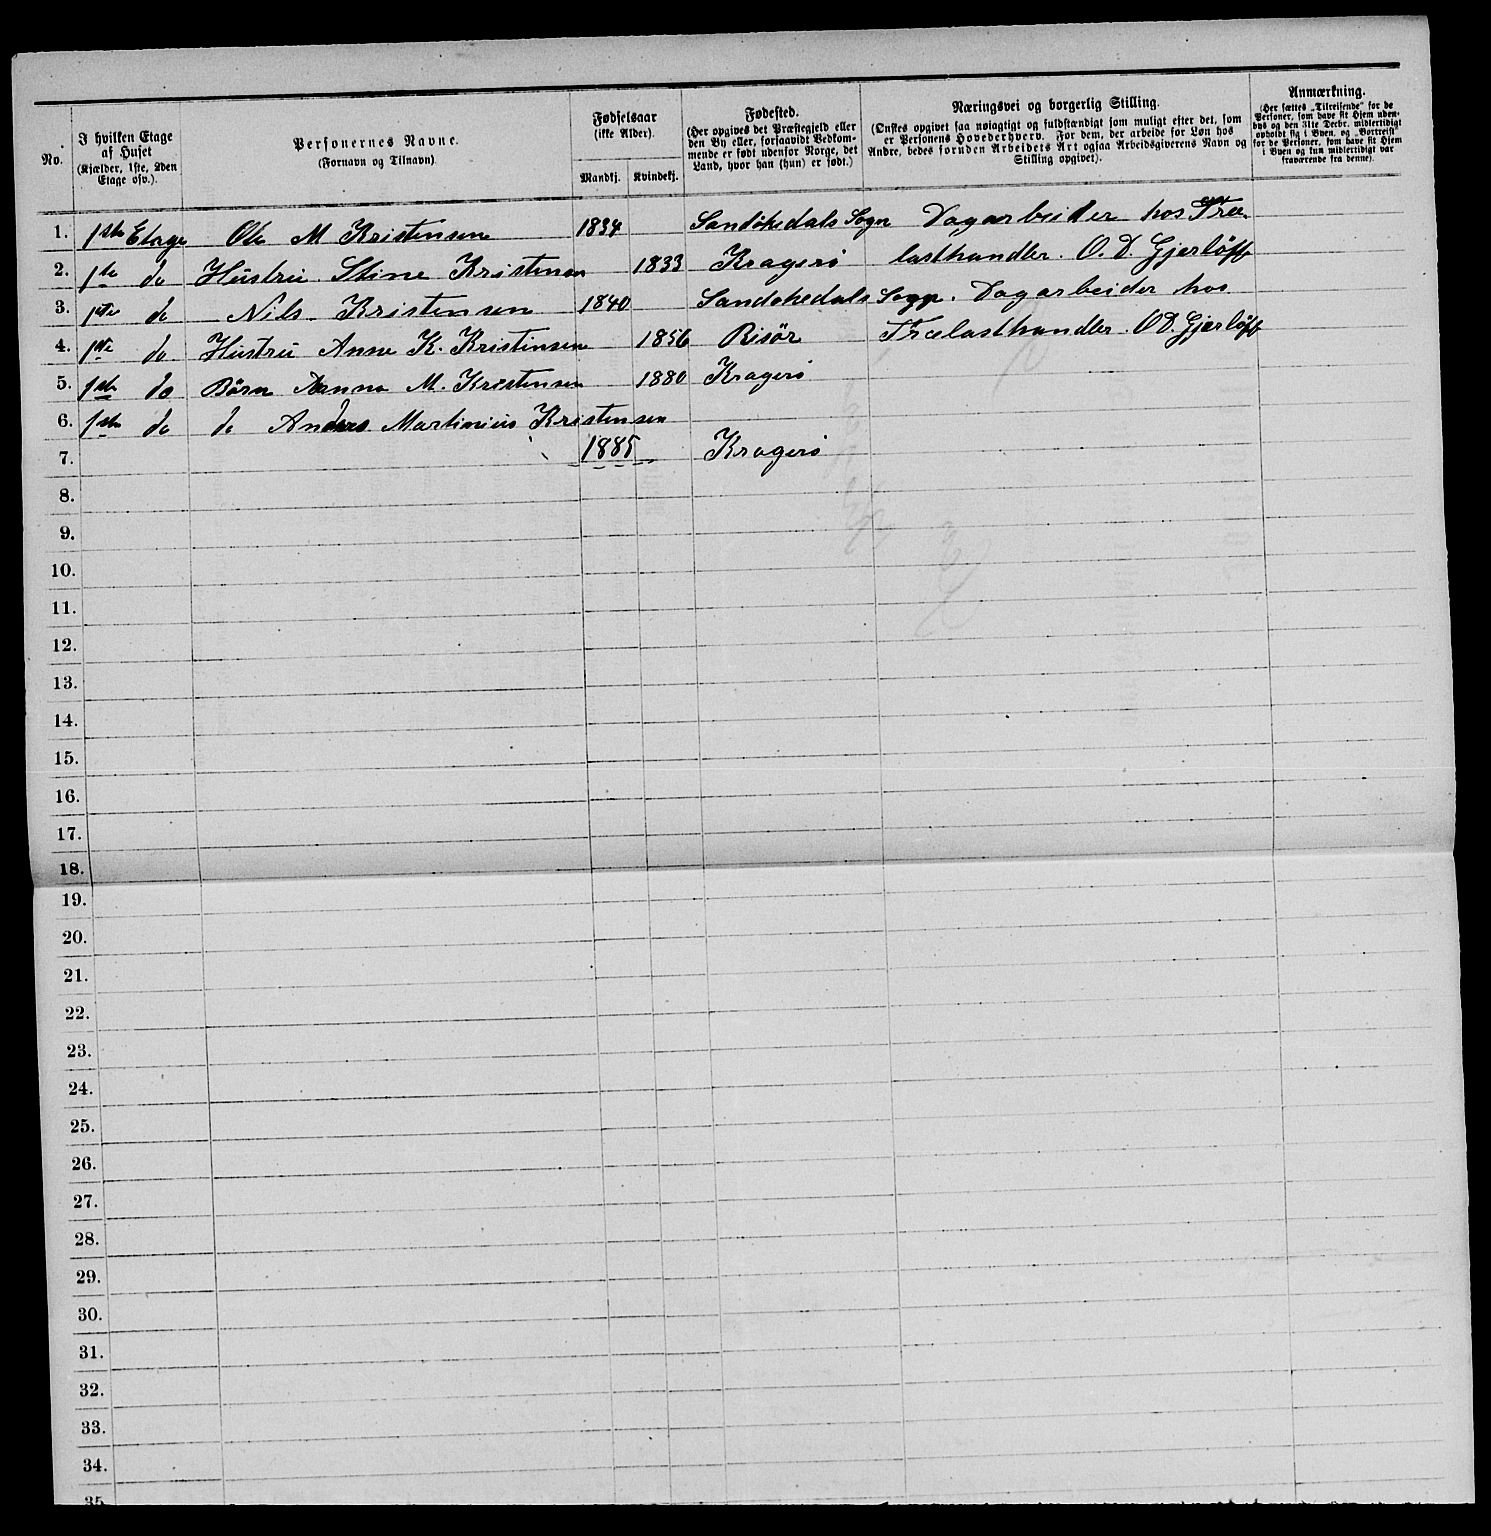 No. | I hvilken Etage af Huset (Kjælder, 1ste, 2den Etage osv.). | Personernes Navne. (Fornavn og Tilnavn) | Fødselsaar (ikke Alder). Mandkj. | Kvindekj. | Fødested. (Her opgives det Præstegjeld eller den By eller, forsaavidt Vedkommende er født udenfor Norge, det Land, hvor han (hun) er født.) | Næringsvei og borgerlig Stilling. (Ønskes opgivet saa nøiagtigt og fuldstændigt som muligt efter det, som er Personens Hovederhverv. For dem, der arbeide for Løn hos Andre, bedes foruden Arbeidets Art ogsaa Arbeidsgiverens Navn og Stilling opgivet). | Anmærkning. (Her sættes „Tilreisende" for de Personer, som have sit Hjem udenbys og den 31te Decbr. midlertidigt opholdt sig i Byen, og „Bortreist" for de Personer, som have sit Hjem i Byen og kun midlertidigt var fraværende fra denne).
1. 1ste Etage Ole M Kristensen 1834 Sandökedals Sogn Dagarbeider hos Træ
2. 1ste do Hustru Stine Kristensen 1833 Kragerö lasthandler. O. D. Gjerløff
3. 1ste do Nils Kristensen 1840 Sandökedals Sogn. Dagarbeider hos
4. 1ste do Hustru Anne K. Kristinsen 1856 Risör Trælasthandler. O D. Gjerløff
5. 1ste do Börn Anna M. Kristensen 1880 Kragerö
6. 1ste do do Anders Martinius Kristensen
7. 1885 Kragerö
8.
9.
10.
11.
12.
13.
14.
15.
16.
17.
18.
19.
20.
21.
22.
23.
24.
25.
26.
27.
28.
29.
30.
31.
32.
33.
34.
35